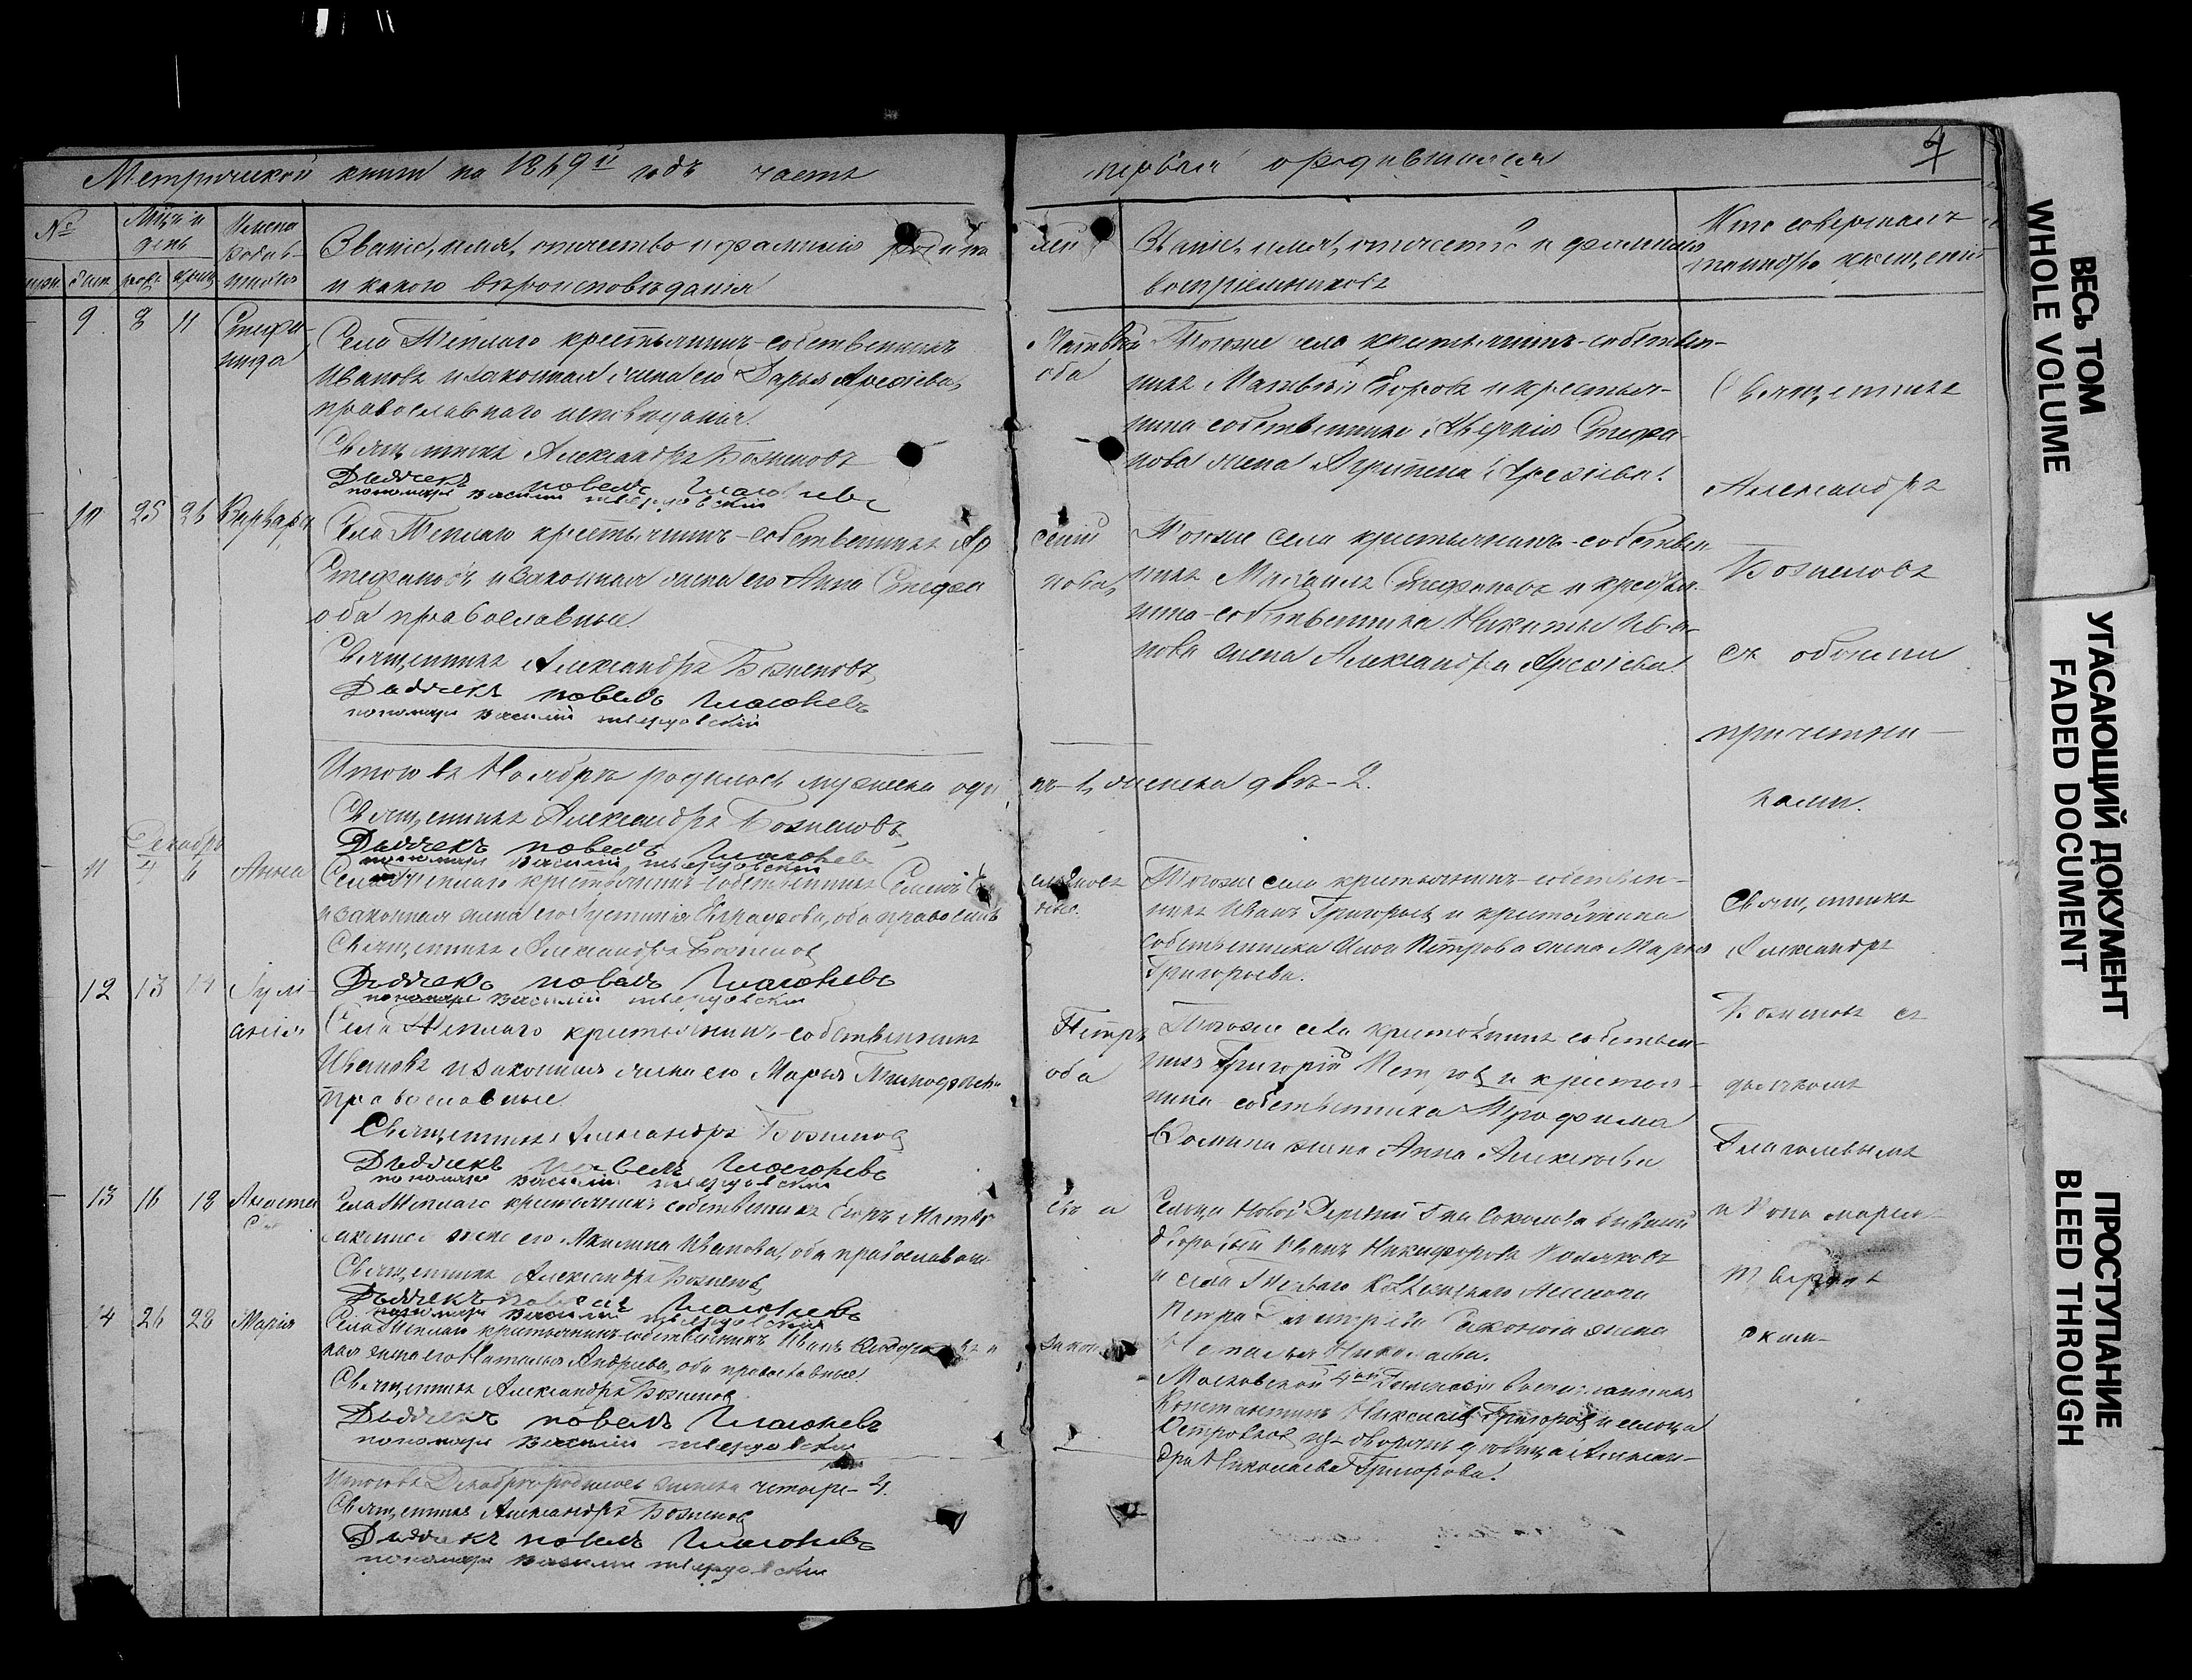 Метрической книги на 1869й годъ часть первая о родившихся
4
№
Мѣц. и день
Имена родив-
шихся
Званіе, имя, отчество и фамилія родителей
и какого вѣроисповѣданія
Званіе, имя, отчество и фамилія
воспріемниковъ
Кто совершалъ
таинство крещенія
9 8 11 Стефа-
нида
Села Теплаго крестьянинъ-собственникъ Матвѣй
Ивановъ и законная жена его Дарья оба
православнаго исповѣданія.
Священникъ Александръ
Дьячекъ Павелъ Глаголевъ
пономарь Василій Твердовскій
Тогоже села крестьянинъ-собствен-
никъ Матвѣй Егоровъ и крестья-
нина собственника Аверкія Стефа-
нова жена Агрипена
Священникъ
Александръ
съ обоими
причетни-
ками.
10 25 26 Варвара
Села Теплаго крестьянинъ-собственникъ Арсеній
Стефановъ и законная жена его Анна Стефанова,
оба православные.
Священникъ Александръ
Дьячекъ Павелъ Глаголевъ
пономарь Василій Твердовскій
Тогоже села крестьянинъ-собствен-
никъ Михаилъ Стефановъ и крестья-
нина-собственника Никиты Ива-
нова жена Александра
Итого въ Ноябрѣ родилось мужеска одинъ-1, женска двѣ-2.
Священникъ Александръ
Дьячекъ Павелъ Глаголевъ
пономарь Василій Твердовскій
Декабрь
11 4 6 Анна
Села Теплаго крестьянинъ-собственникъ Семенъ
и законная жена его Іустинія оба православ
Священникъ Александръ
Дьячекъ Павелъ Глаголевъ
пономарь Василій Твердовскій
Тогоже села крестьянинъ-собствен-
никъ Иванъ Григорьевъ и крестьянина
собственника Петрова жена Марья
Григорьева.
Священникъ
Александръ
съ
дьячкомъ
Глаголевымъ
и Пономаремъ
Твердов
скимъ
12 13 14 Іулі-
анія
Села Теплаго крестьянинъ-собственникъ Петръ
Ивановъ и законная жена его Марья Тимофеева оба
православные
Священникъ Александръ
Дьячекъ Павелъ Глаголевъ
пономарь Василій Твердовскій
Тогоже села крестьянинъ собствен-
никъ Григорій Петровъ и крестья-
нина собственника Трофима
Фомина жена Анна Алексѣева
13 16 18 Анаста
Села Теплаго крестьянинъ собственникъ Егоръ Матвѣевъ и
законная жена его Акилина Иванова, оба православные
Священникъ Александръ
Дьячекъ Павелъ Глаголевъ
пономарь Василій Твердовскій
Сельца Новой Деревни Г-на Соколова бывшій
дворовый Иванъ Никифоровъ
и села Теплаго
Петра жена
Наталья Николаева.
14 26 28 Марія
Села Теплаго крестьянинъ-собственникъ Иванъ и закон
ная жена его Наталья Андреева, оба православные.
Священникъ Александръ
Дьячекъ Павелъ Глаголевъ
пономарь Василій Твердовскій
Московской 4ой Гимназіи воспитанникъ
Константинъ Николаевъ Григоровъ и сельца
Петровскаго дворянъ дѣвица Алексан-
дра Николаева Григорова.
Итого въ Декабрѣ родилось женска четыре-4.
Священникъ Александръ
Дьячекъ Павелъ Глаголевъ
пономарь Василій Твердовскій
ВЕСЬ ТОМ
WHOLE VOLUME
УГАСАЮЩИЙ ДОКУМЕНТ
FADED DOCUMENT
ПРОСТУПАНИЕ
BLEED THROUGH